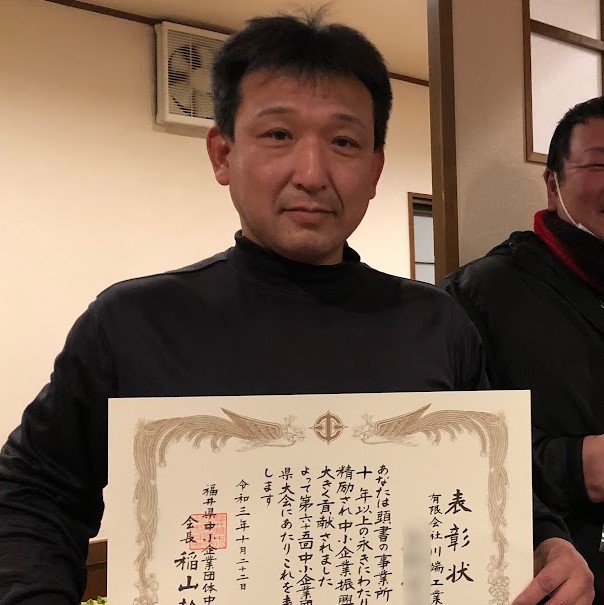 表彰状
有限会社川端工業
あなたは頭書の事業所
十年以上の永きにわたり
精励され中小企業振興
大きく貢献されました
よって第六十五回中小企業団
県大会にあたりこれを表
します
令和三年十月二十二日
福井県中小企業団体中
会長 稲山